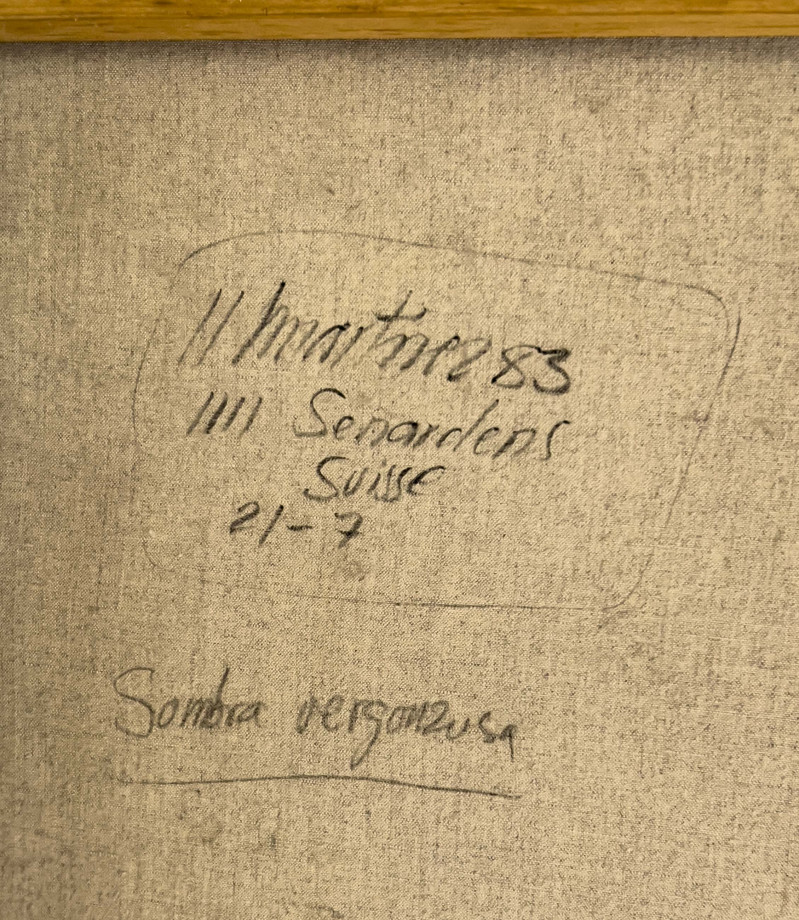 // Martinez 83
1111 Senardens
Suisse
21-7
Sombra vergonzusa